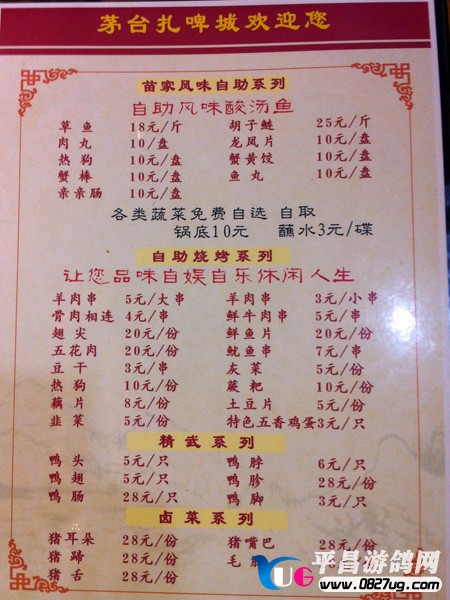 茅台扎啤城欢迎您
苗家风味自助系列
自助风味酸汤鱼
草鱼 18元/斤 胡子鲢 25元/斤
肉丸 10/盘 龙凤片 10元/盘
热狗 10元/盘 蟹黄饺 10元/盘
蟹棒 10元/盘 鱼丸 10元/盘
亲亲肠 10元/盘
各类蔬菜免费自选 自取
锅底10元 蘸水3元/碟
自助烧烤系列
让您品味自娱自乐休闲人生
羊肉串 5元/大串 羊肉串 3元/小串
骨肉相连 4元/串 鲜牛肉串 5元/串
翅尖 20元/份 鲜鱼片 20元/份
五花肉 20元/份 鱿鱼串 7元/串
豆干 3元/串 灰菜 5元/份
热狗 10元/份 蕨粑 10元/份
藕片 8元/份 土豆片 5元/份
韭菜 5元/份 特色五香鸡蛋3元/只
精武系列
鸭头 5元/只 鸭脖 6元/只
鸭翅 5元/只 鸭胗 28元/份
鸭肠 28元/只 鸭脚 3元/只
卤菜系列
猪耳朵 28元/份 猪嘴巴 28元/份
猪蹄 28元/份 毛
猪舌 28元/份
YUG 平昌游鸽网
www.0827ug.com